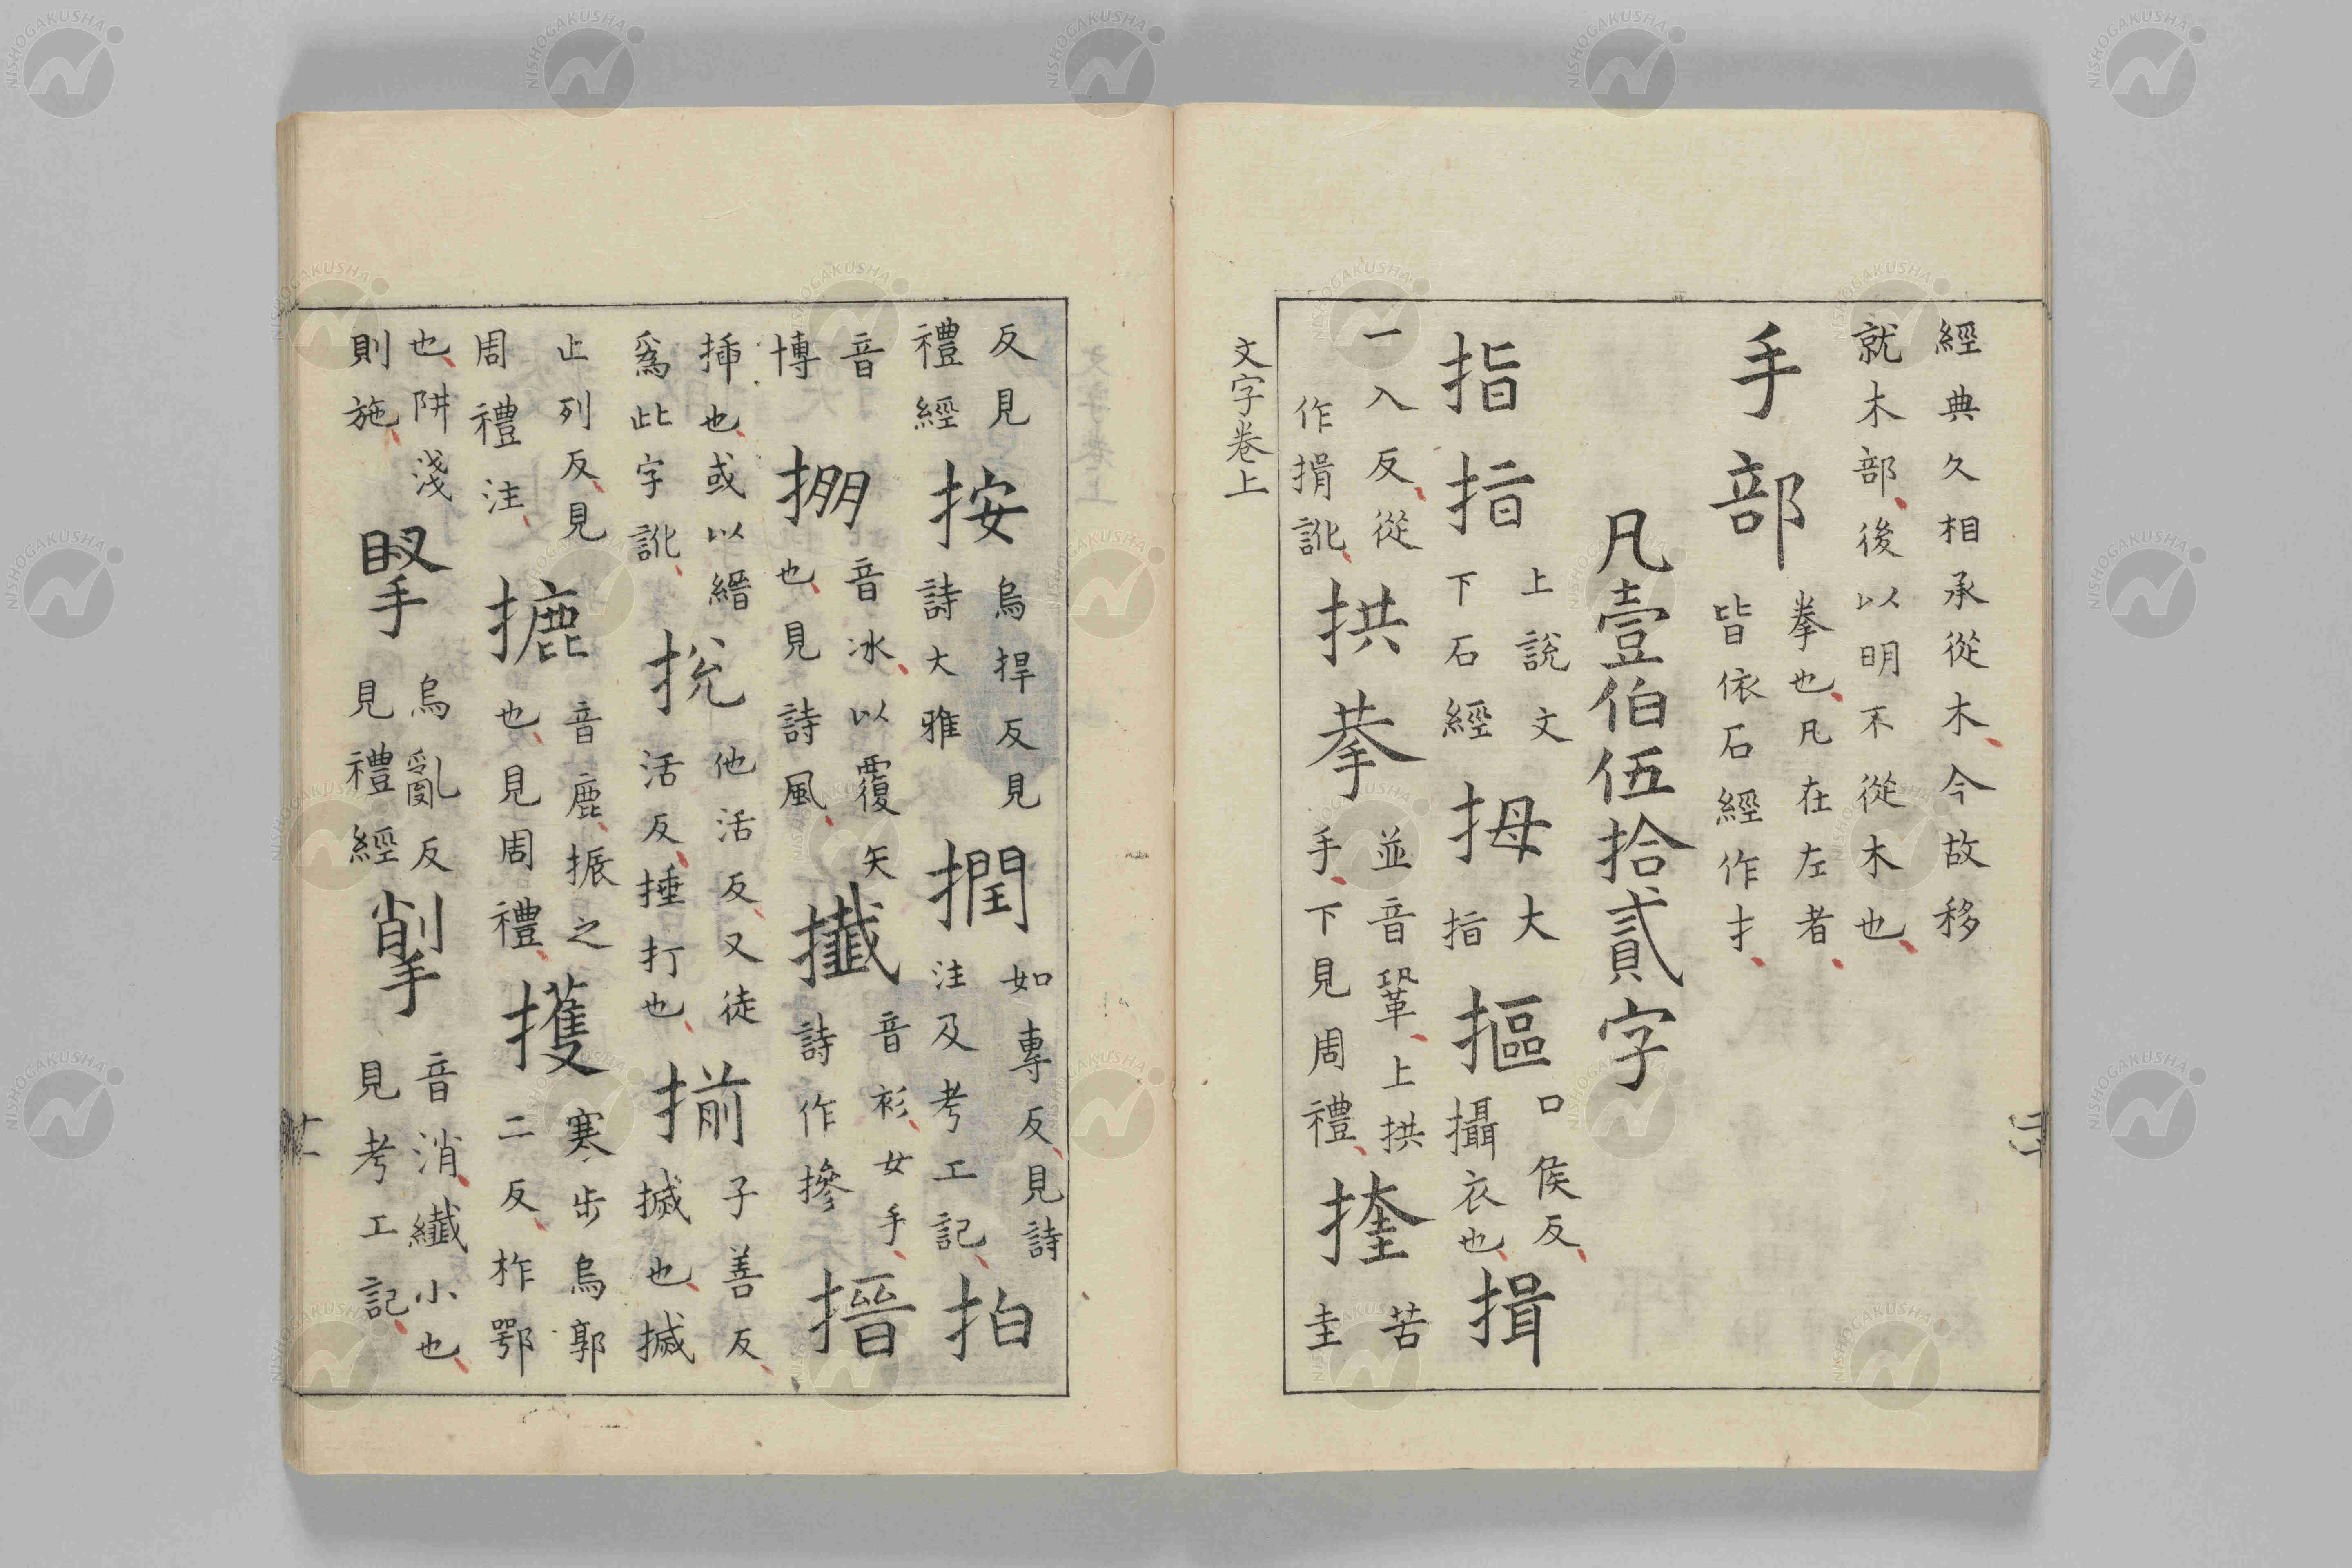 經典久相承從木今故移
就木部後以明不從木也
手部 拳也凡在左者
皆依石經作扌
凡壹伯伍拾貳字
指指 上說文
下石經 拇 大
指 摳 口侯反
攝衣也 揖
一入反從
作揖訛 拱拲 並音鞏上拱
手下見周禮 𢮷 苦
圭
文字卷上
反見
禮經 按 烏捍反見
詩大雅 撋 如專反見詩
注及考工記 拍
音
博 掤 音冰以覆矢
也見詩風 攕 音衫女手
詩作摻 搢
插也或以縉
爲此字訛 挩 他活反又徒
活反捶打也 揃 子善反
搣也搣
止列反見
周禮注 摝 音鹿振之
也見周禮 擭 寒步烏郭
二反柞鄂
也阱淺
則施 掔 烏亂反
見禮經 揱 音消纖小也
見考工記
NISHOGAKUSHA